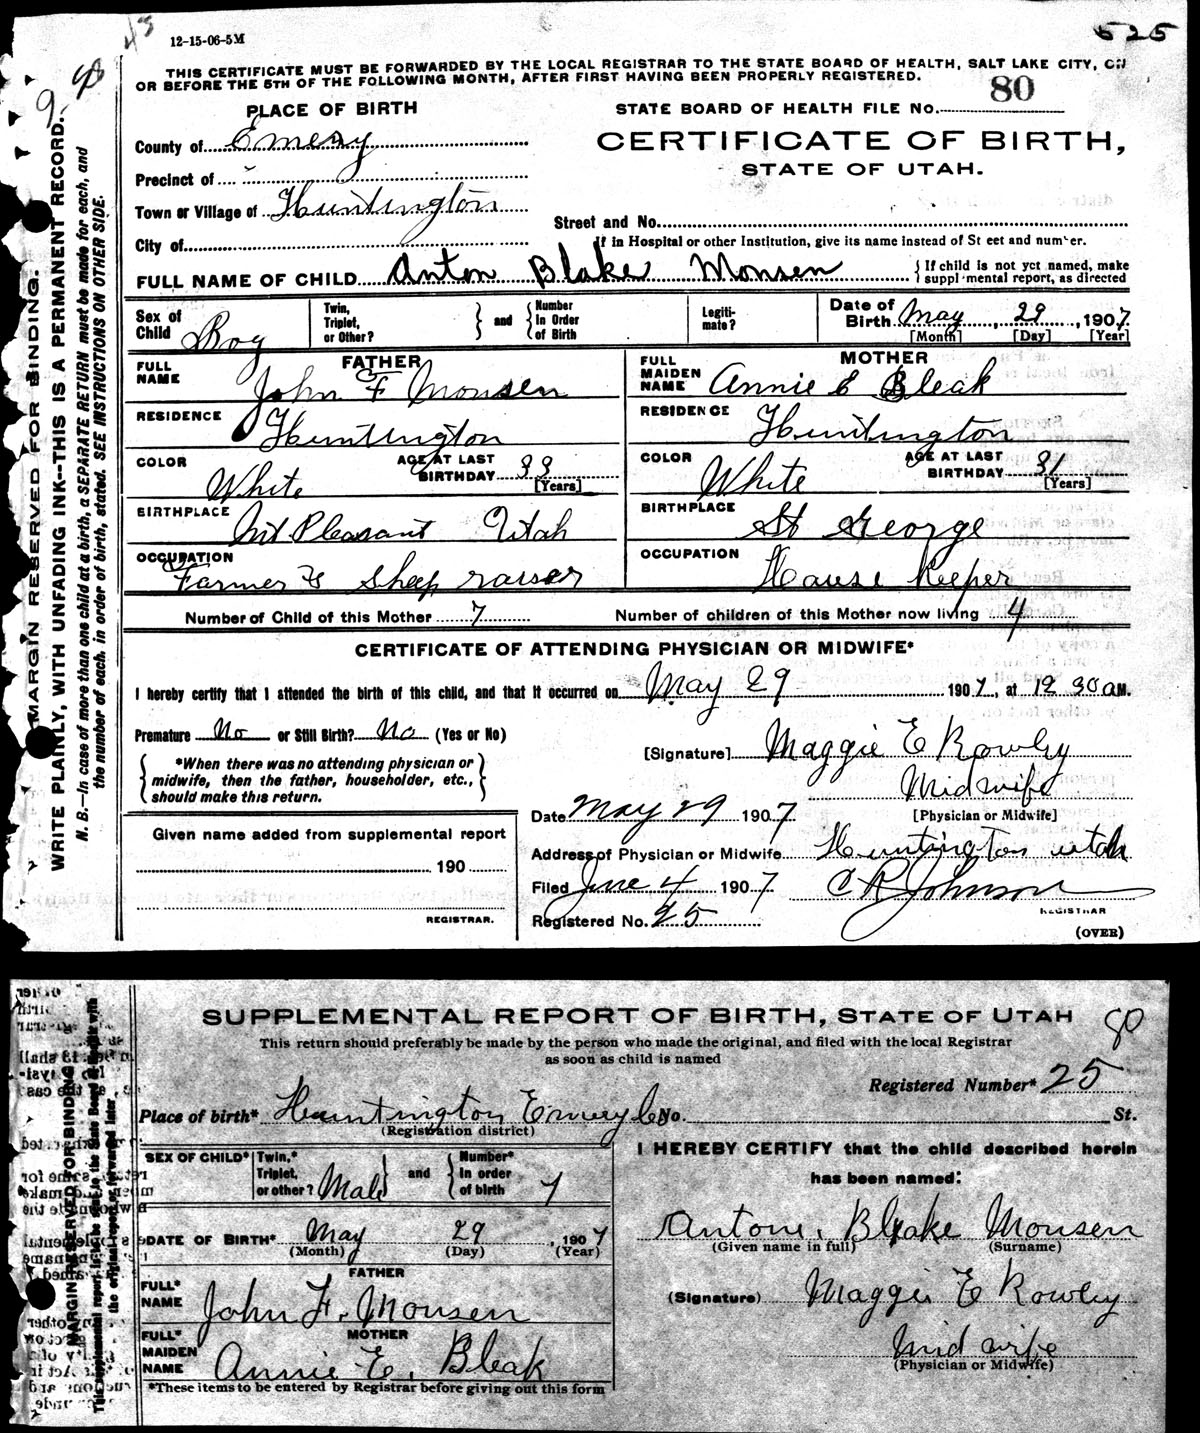 43
12-15-06-5M
525
THIS CERTIFICATE MUST BE FORWARDED BY THE LOCAL REGISTRAR TO THE STATE BOARD OF HEALTH, SALT LAKE CITY, ON
OR BEFORE THE 5TH OF THE FOLLOWING MONTH, AFTER FIRST HAVING BEEN PROPERLY REGISTERED.
PLACE OF BIRTH
STATE BOARD OF HEALTH FILE No. 80
County of Emery
CERTIFICATE OF BIRTH,
Precinct of "
STATE OF UTAH.
Town or Village of Huntington
Street and No.
City of
If in Hospital or other Institution, give its name instead of St eet and number.
FULL NAME OF CHILD Anton Blake Monsen
If child is not yet named, make
suppl mental report, as directed
Sex of Child Boy
Twin, Triplet, or Other?
and
Number In Order of Birth
Legiti-mate?
Date of Birth May 29, 1907.
[Month] [Day] [Year]
FATHER
FULL NAME John F Monsen
MOTHER
FULL MAIDEN NAME Annie E Bleak
RESIDENCE Huntington
RESIDENCE Huntington
COLOR White
AGE AT LAST BIRTHDAY 33 [Years]
COLOR White
AGE AT LAST BIRTHDAY 31 [Years]
BIRTHPLACE Mt Pleasant Utah
BIRTHPLACE St George
OCCUPATION Farmer & Sheep raiser
OCCUPATION House Keeper
Number of Child of this Mother 7
Number of children of this Mother now living 4
CERTIFICATE OF ATTENDING PHYSICIAN OR MIDWIFE*
I hereby certify that I attended the birth of this child, and that it occurred on May 29 1907, at 12 30 a M.
Premature No or Still Birth? No (Yes or No)
[Signature] Maggie E Rowley
*When there was no attending physician or
midwife, then the father, householder, etc.,
should make this return.
Midwife
[Physician or Midwife]
Date May 29 1907
Given name added from supplemental report
190
REGISTRAR.
Address of Physician or Midwife Huntington utah
Filed June 4 1907 C R Johnson
REGISTRAR
Registered No. 25
(OVER)
MARGIN RESERVED FOR BINDING.
WRITE PLAINLY, WITH UNFADING INK--THIS IS A PERMANENT RECORD.
N. B.—In case of more than one child at a birth, a SEPARATE RETURN must be made for each, and
the number of each, in order of birth, stated. SEE INSTRUCTIONS ON OTHER SIDE.
SUPPLEMENTAL REPORT OF BIRTH, STATE OF UTAH
80
This return should preferably be made by the person who made the original, and filed with the local Registrar
as soon as child is named
Registered Number* 25
Place of birth* Huntington Emery Co No. St.
(Registration district)
SEX OF CHILD*
Twin,* Triplet, or other? Male
and
Number* In order of birth 7
I HEREBY CERTIFY that the child described herein
has been named:
DATE OF BIRTH* May 29, 1907
(Month) (Day) (Year)
Antone, Blake Monsen
(Given name in full) (Surname)
FATHER
FULL* NAME John F. Monsen
(Signature) Maggie E Rowley
MOTHER
FULL* MAIDEN NAME Annie E. Bleak
Mid wife
(Physician or Midwife)
*These items to be entered by Registrar before giving out this form
MARGIN RESERVED FOR BINDING